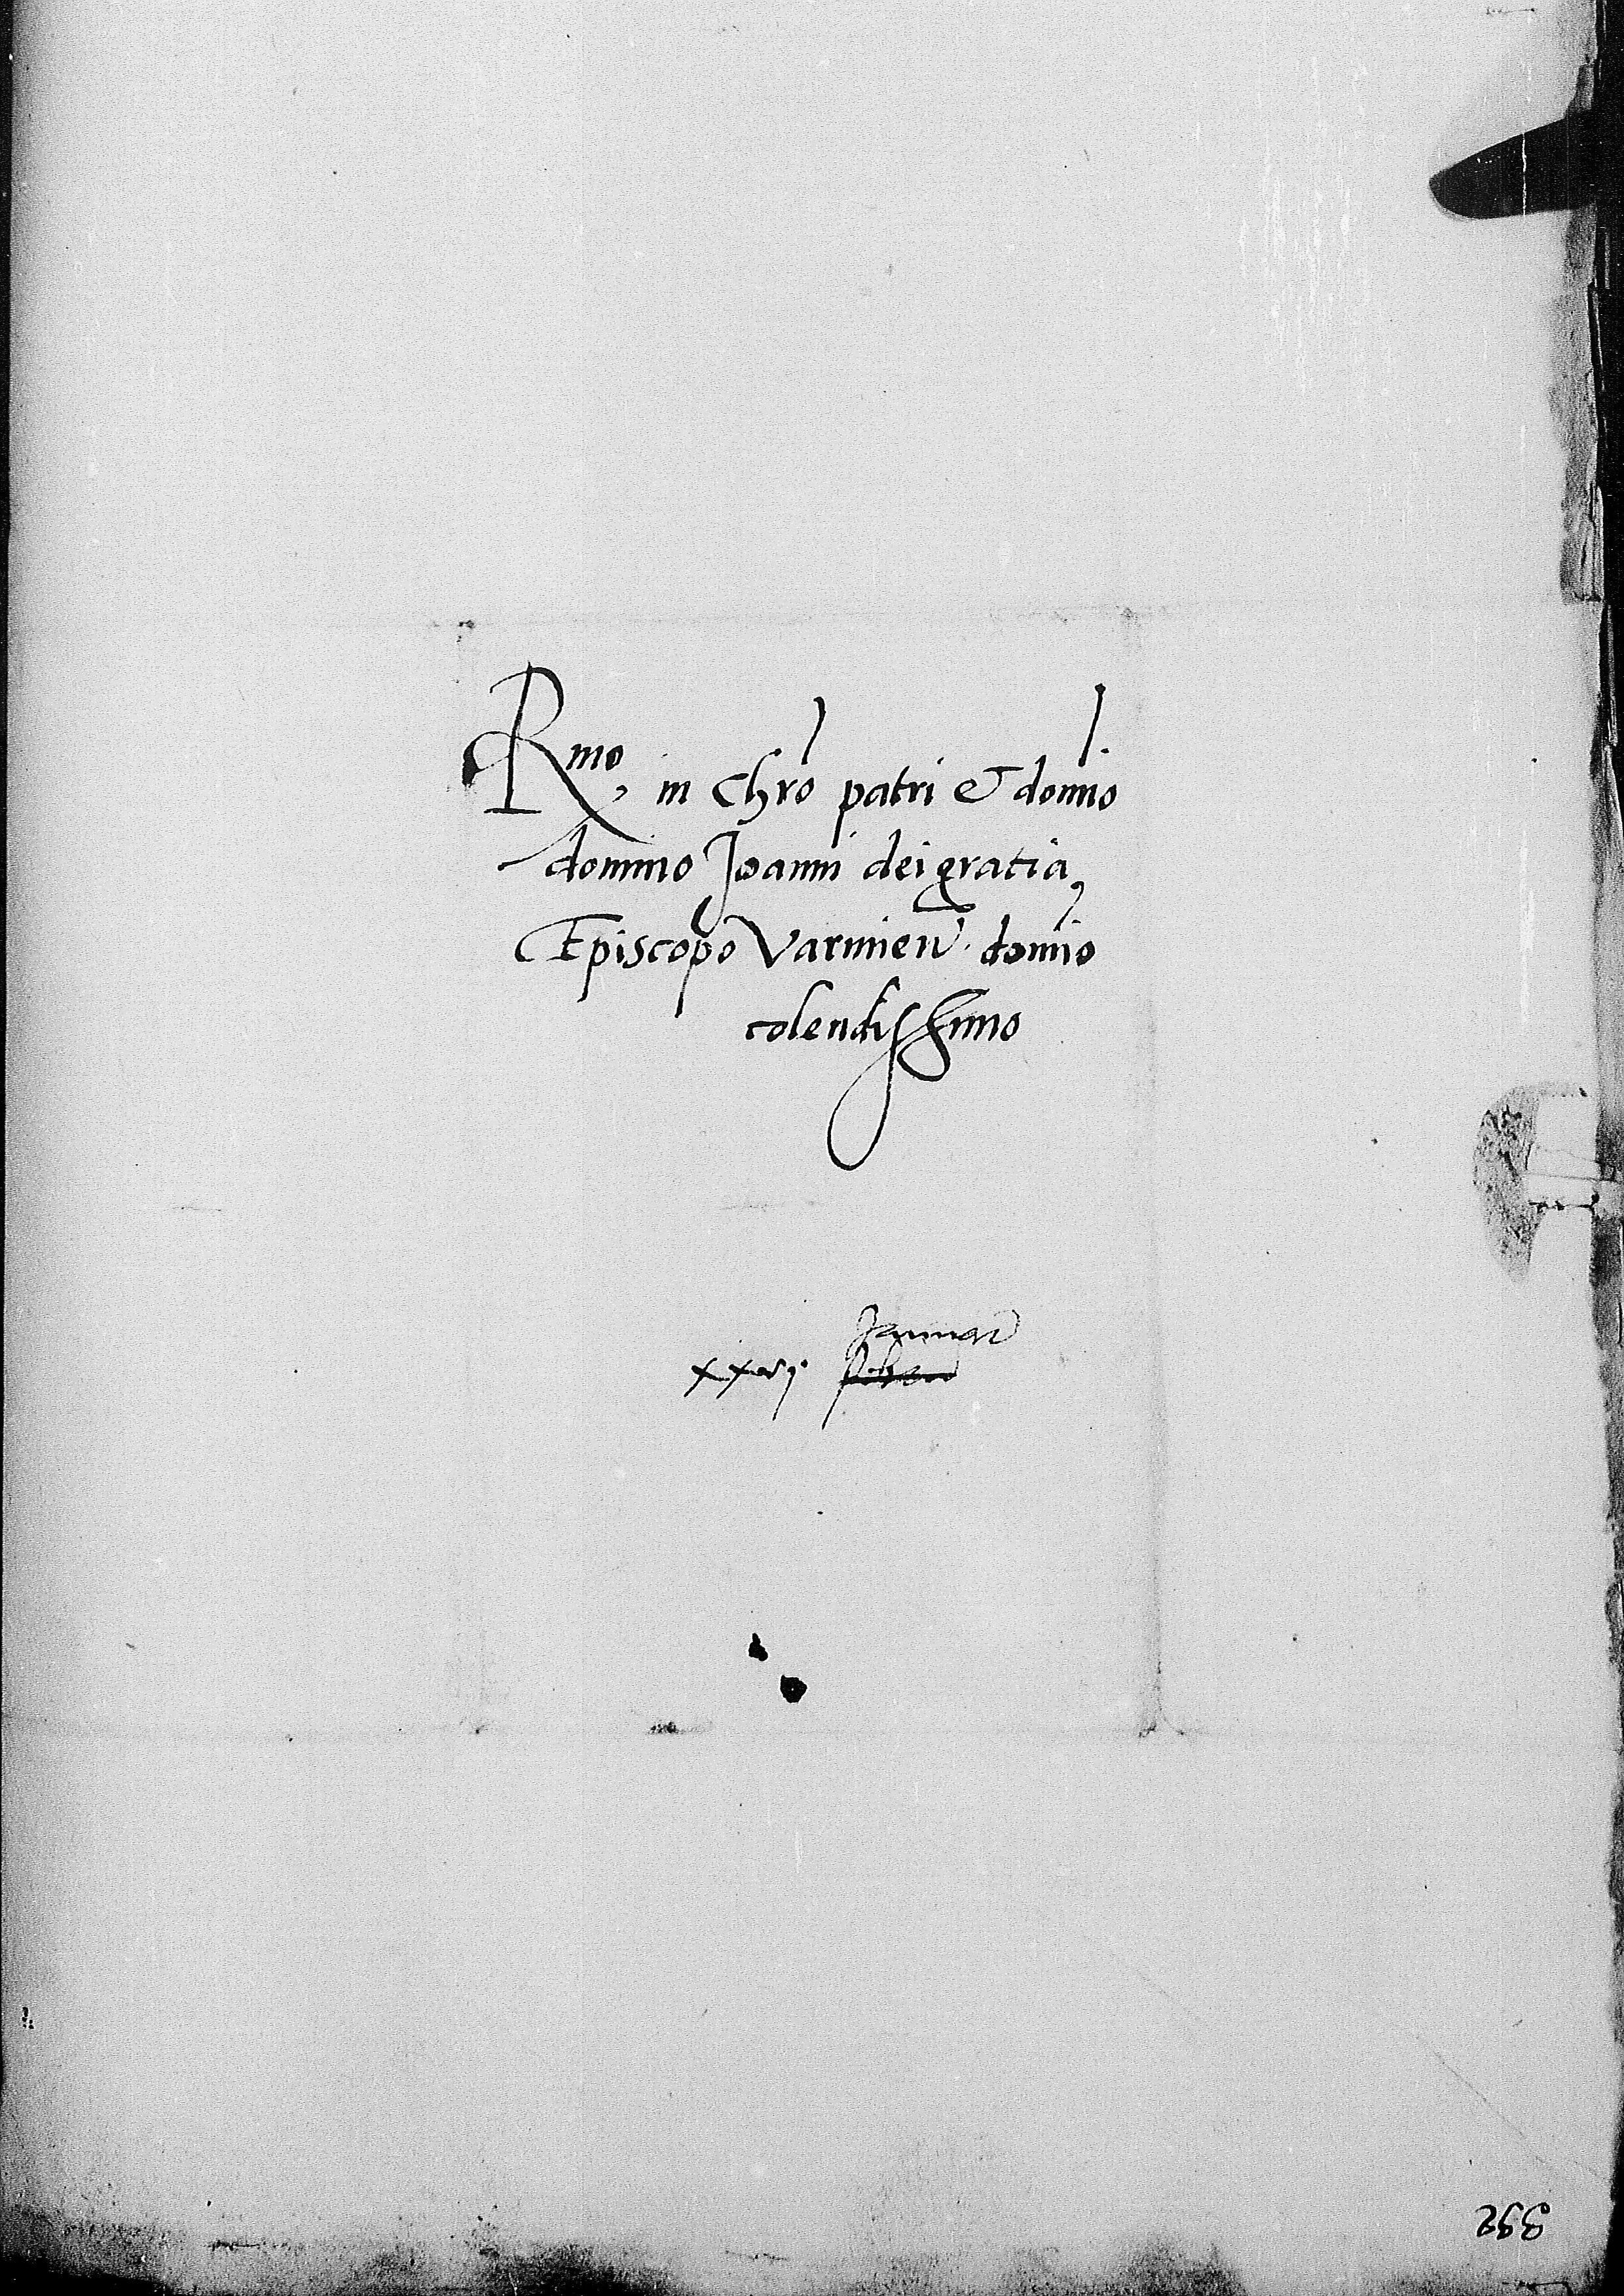 Rmo in Chro patri et domno
domino Joanni dei gratia
Episcopo Varmien. domno
colendissimo
Januar
xxvj.
392